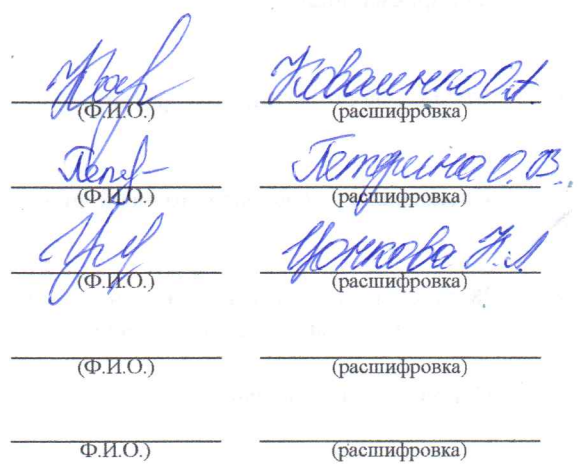 Коваленко О.А
(Ф.И.О.) (расшифровка)
Петрина О.В.
(Ф.И.О.) (расшифровка)
Цонкова Н.Л
(Ф.И.О.) (расшифровка)
(Ф.И.О.) (расшифровка)
Ф.И.О.) (расшифровка)